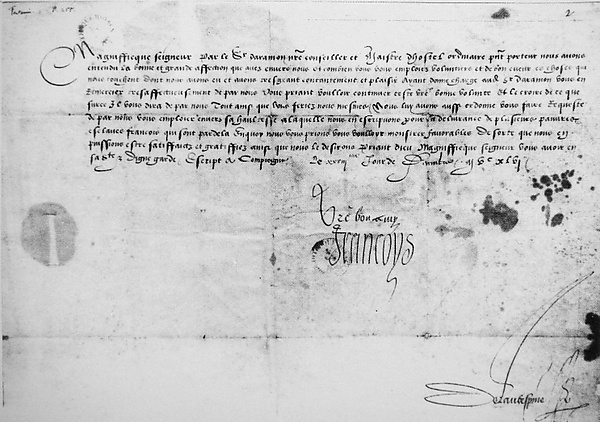 Magnifficque seigneur par le Sr daramon nre conseiller et Maistre dhostel ordinaire pnt porteur nous avons
entendu la bonne et grande affection que avez envers nous et combien vous vous emploiez voluntiers et de bon cueur es choses qui
nous touchent dont nous avons eu et avons tresgrant contantement et plaisir Ayant donne charge aud. Sr daramon vous en
remercier tresaffectueusement de par nous Vous priant voulloir continuer ceste vre bonne volunte Et le croire de ce que
sur ce Il vous dira de par nous Tout ainsi que vous feriez nous mesmes Nous luy avons aussi ordonne vous faire Requeste
de par nous vous emploier envers sa haultesse a laquelle nous en escripvons pour la delivrance de plusieurs pauvres
esclaves francois qui sont pardela En quoy nous vous prions vous voulloir monstrer favorables De sorte que nous en
puissions estre satisfaictz et gratiffiez ainsi que nous le desirons Priant dieu Magnifficque seigneur vous avoir en
sa ste & digne garde Escript a Compiegne Le Jour de mil Vc xlvj
Vre bon amy
Francoys
Delaubespine
2